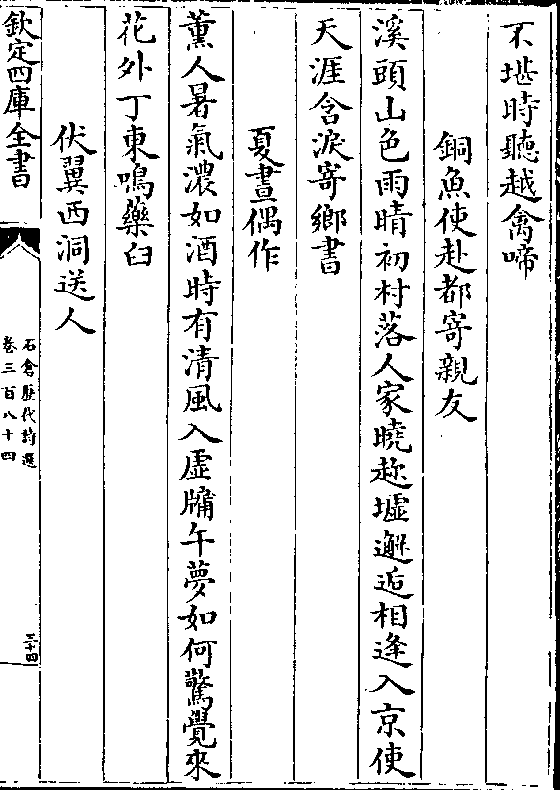 不堪時聽越禽啼
銅魚使赴都寄親友
溪頭山色雨晴初村落人家曉趂墟邂逅相逢入京使
天涯含淚寄鄉書
夏晝偶作
薰人暑氣濃如酒時有清風入虛牖午夢如何驚覺來
花外丁東鳴藥臼
伏翼西洞送人
欽定四庫全書
石倉歷代詩選
卷三百八十四
三十四